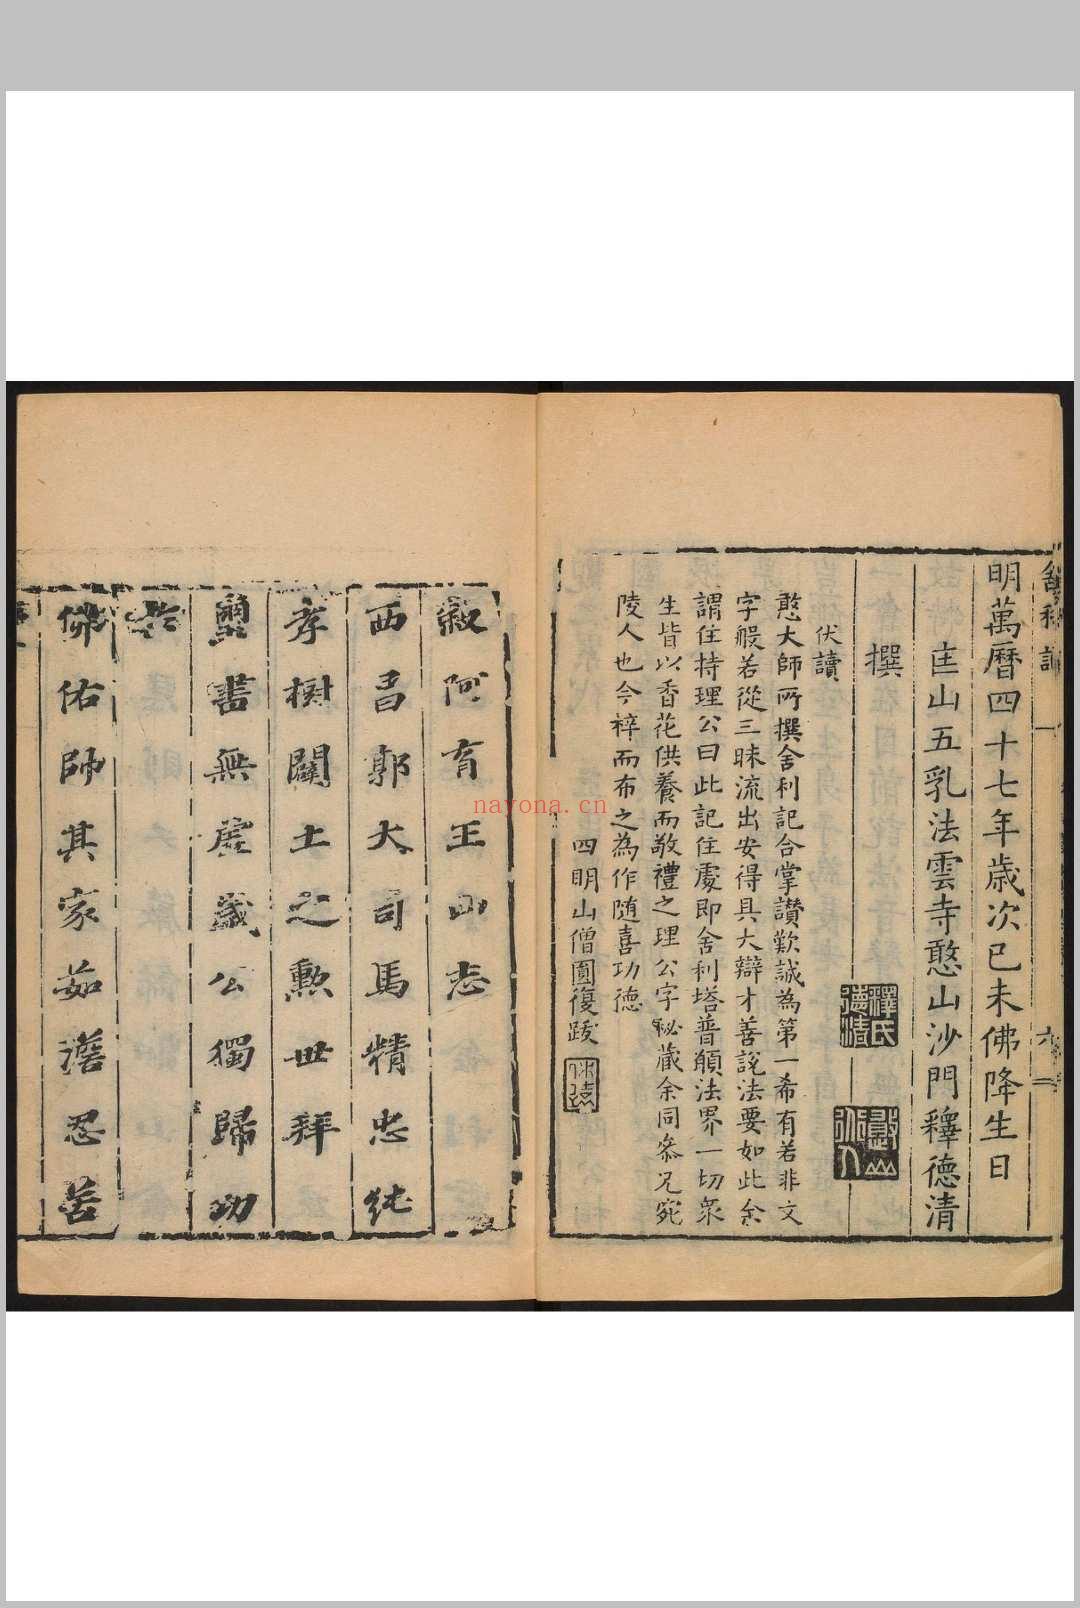 舍利記 一 六
明萬曆四十七年歲次己未佛降生日
匡山五乳法雲寺憨山沙門釋德清
撰
釋氏德清
憨山
伏讀
憨大師所撰舍利記合掌讃歎誠為第一希有若非文
字般若從三昧流出安得具大辯才善說法要如此余
謂住持理公曰此記住處即舍利塔普願法界一切衆
生皆以香花供養而敬禮之理公字秘藏余同叅兄宛
陵人也今梓而布之為作随喜功德
四明山僧圓復跋
休遠
叙阿育王山志
西昌郭大司馬精忠純
孝樹闢土之勲世拜
璽書無虗歲公獨歸功
於
佛佑帥其家茹澹忍苦
nayona.cn